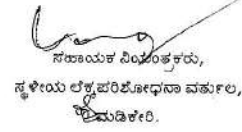 ಸಹಾಯಕ ನಿಯಂತ್ರಕರು,
ಸ್ಥಳೀಯ ಲೆಕ್ಕಪರಿಶೋಧನಾ ವರ್ತುಲ,
ಮಡಿಕೇರಿ.